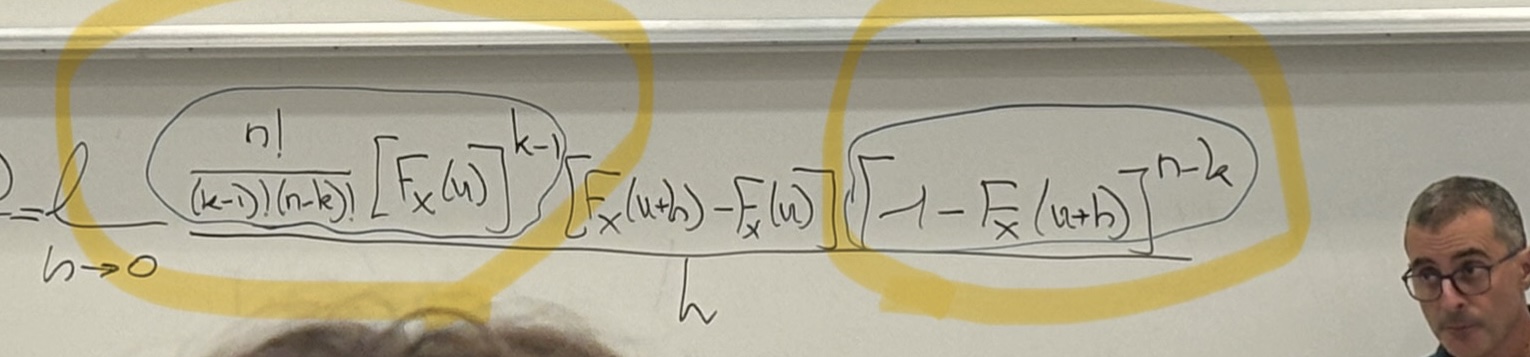 = l n!/((k-1)!(n-k)!) [F_x(u)]^{k-1} [F_x(u+h) - F_x(u)] [1 - F_x(u+h)]^{n-k}
h→0
h